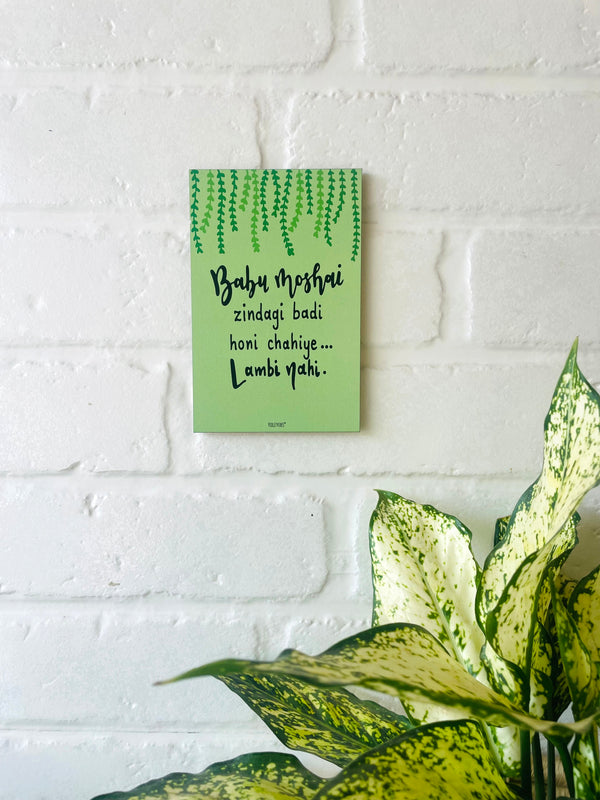 Babu Moshai
zindagi badi
honi chahiye...
Lambi Nahi.